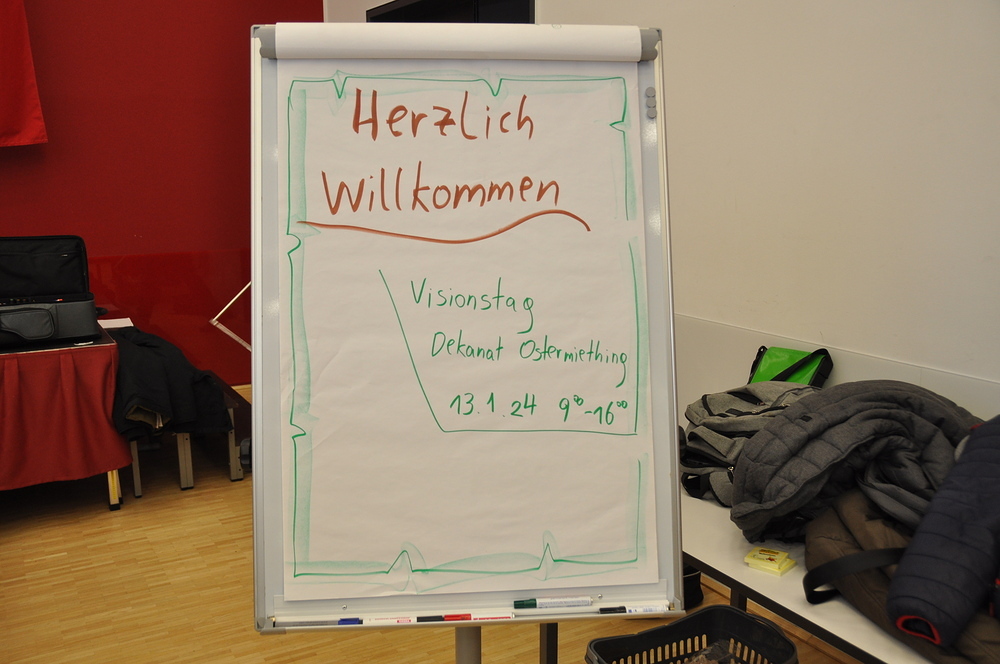 Herzlich
Willkommen
Visionstag
Dekanat Ostermiething
13.1.24 9⁰⁰-16⁰⁰